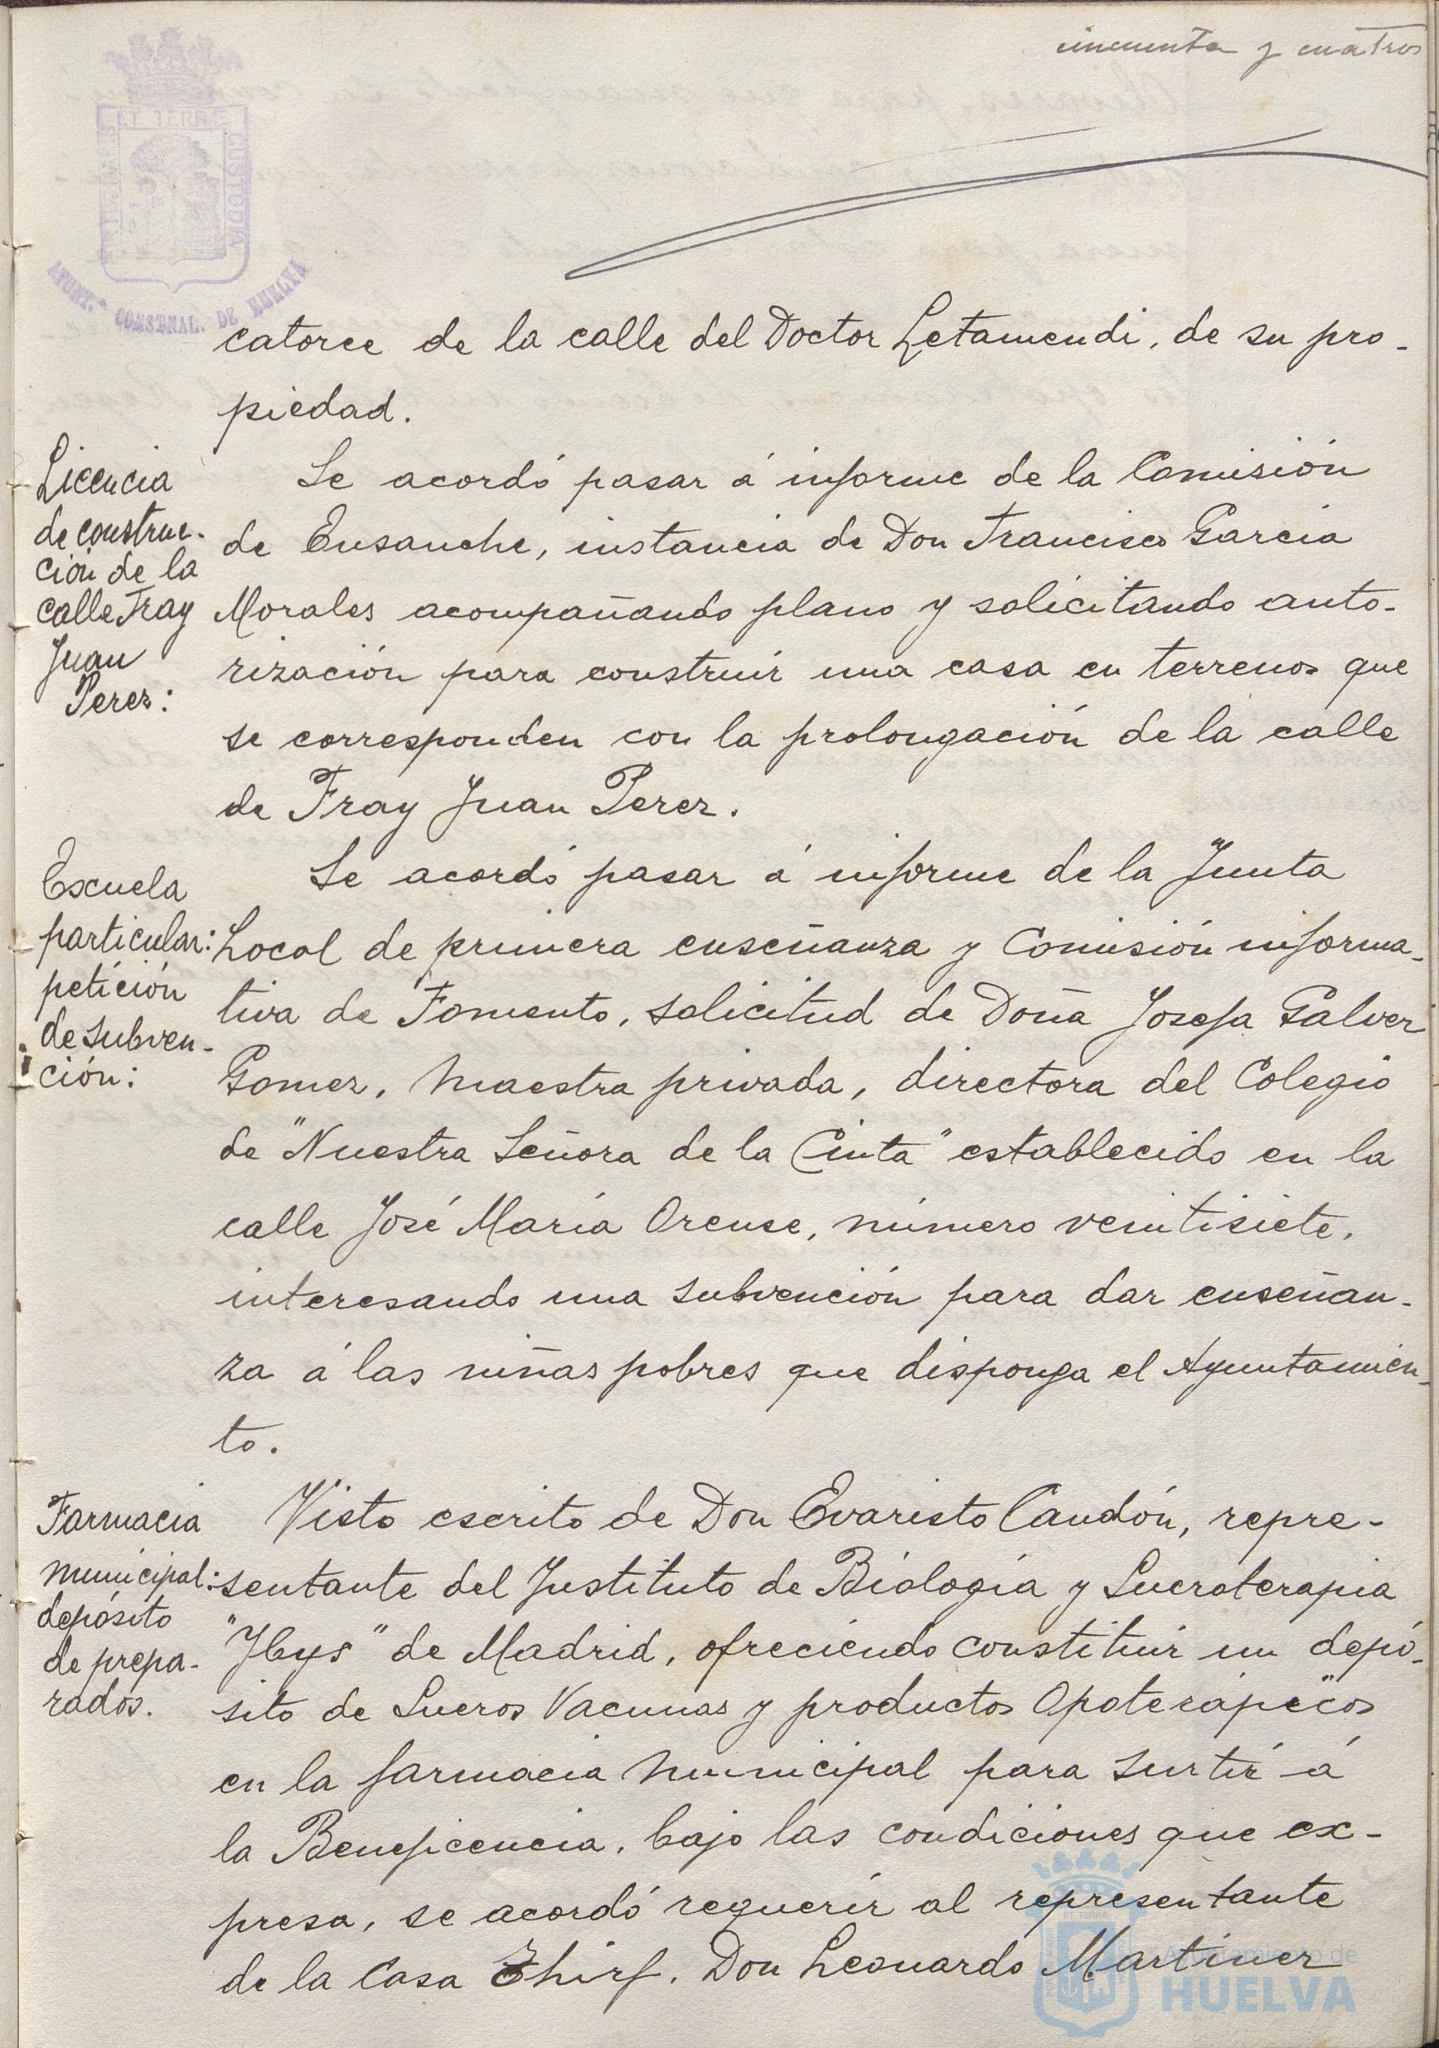 cincuenta y cuatro
PORTUS MARIS ET TERRAE CUSTODIA
AYUNT.º CONSTNAL. DE HUELVA
catorce de la calle del Doctor Letamendi, de su pro-
piedad.
Licencia
de construc-
ción de la
calle Fray
Juan
Perez:
Se acordó pasar á informe de la Comisión
de Ensanche, instancia de Don Francisco Garcia
Morales acompañando plano y solicitando auto-
rización para construir una casa en terrenos que
se corresponden con la prolongación de la calle
de Fray Juan Perez.
Escuela
particular:
petición
de subven-
ción:
Se acordó pasar á informe de la Junta
Local de primera enseñanza y Comisión informa-
tiva de Fomento, solicitud de Doña Josefa Galvez
Gomez, Maestra privada, directora del Colegio
de "Nuestra Señora de la Cinta" establecido en la
calle José María Orense, número veintisiete,
interesando una subvención para dar enseñan-
za á las niñas pobres que disponga el Ayuntamien-
to.
Farmacia
municipal:
depósito
de prepa-
rados.
Visto escrito de Don Evaristo Caudón, repre-
sentante del Instituto de Biología y Sueroterapia
"Ibys" de Madrid, ofreciendo constituir un depó-
sito de Sueros Vacunas y productos Opoterápicos
en la farmacia Municipal para surtir á
la Beneficencia, bajo las condiciones que ex-
presa, se acordó requerir al representante
de la Casa Thirf, Don Leonardo Martinez
Ayuntamiento de
HUELVA